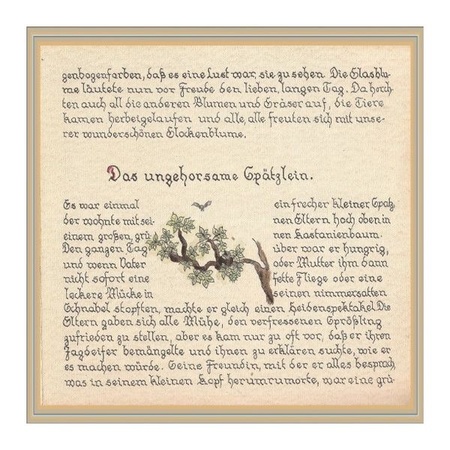 genbogenfarben, daß es eine Lust war, sie zu sehen. Die Glasblu-
me läutete nun vor Freude den lieben, langen Tag. Da horch-
ten auch all die anderen Blumen und Gräser auf, die Tiere
kamen herbeigelaufen und alle, alle freuten sich mit unse-
rer wunderschönen Glockenblume.
Das ungehorsame Spätzlein.
Es war einmal ein frecher kleiner Spatz,
der wohnte mit sei- nen Eltern hoch oben in
einem großen, grü- nen Kastanienbaum.
Den ganzen Tag über war er hungrig,
und wenn Vater oder Mutter ihm dann
nicht sofort eine fette Fliege oder eine
leckere Mücke in seinen nimmersatten
Schnabel stopften, machte er gleich einen Heidenspektakel. Die
Eltern gaben sich alle Mühe, den verfressenen Sprößling
zufrieden zu stellen, aber es kam nur zu oft vor, daß er ihren
Jagdeifer bemängelte und ihnen zu erklären suchte, wie er
es machen würde. Seine Freundin, mit der er alles besprach,
was in seinem kleinen Kopf herumrumorte, war eine grü-